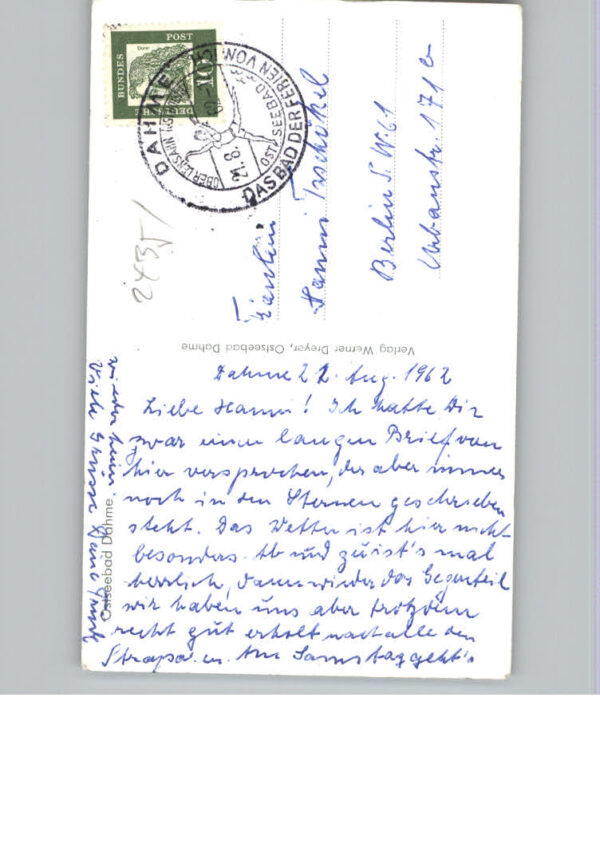 DEUTSCHE
BUNDES
POST
Dürer
10
DAHME
DAS BAD DER FERIEN VON
OSTSEEBAD
24.8.62
2435
Fräulein
Hanni Tschökel
Berlin S.W.61
Urbanstr. 171
Verlag Werner Dreyer, Ostseebad Dahme
Ostseebad Dahme
Dahme 22. Aug. 1962
Liebe Hanni! Ich hatte Dir
zwar einen langen Brief von
hier versprochen, der aber immer
noch in den Sternen geschrieben
steht. Das Wetter ist hier nicht
besonders. Ab und zu ist's mal
herrlich, dann wieder das Gegenteil
wir haben uns aber trotzdem
recht gut erholt nach alle den
Strapazen. Am Samstag geht's
wieder heim.
Viele Grüsse Deine